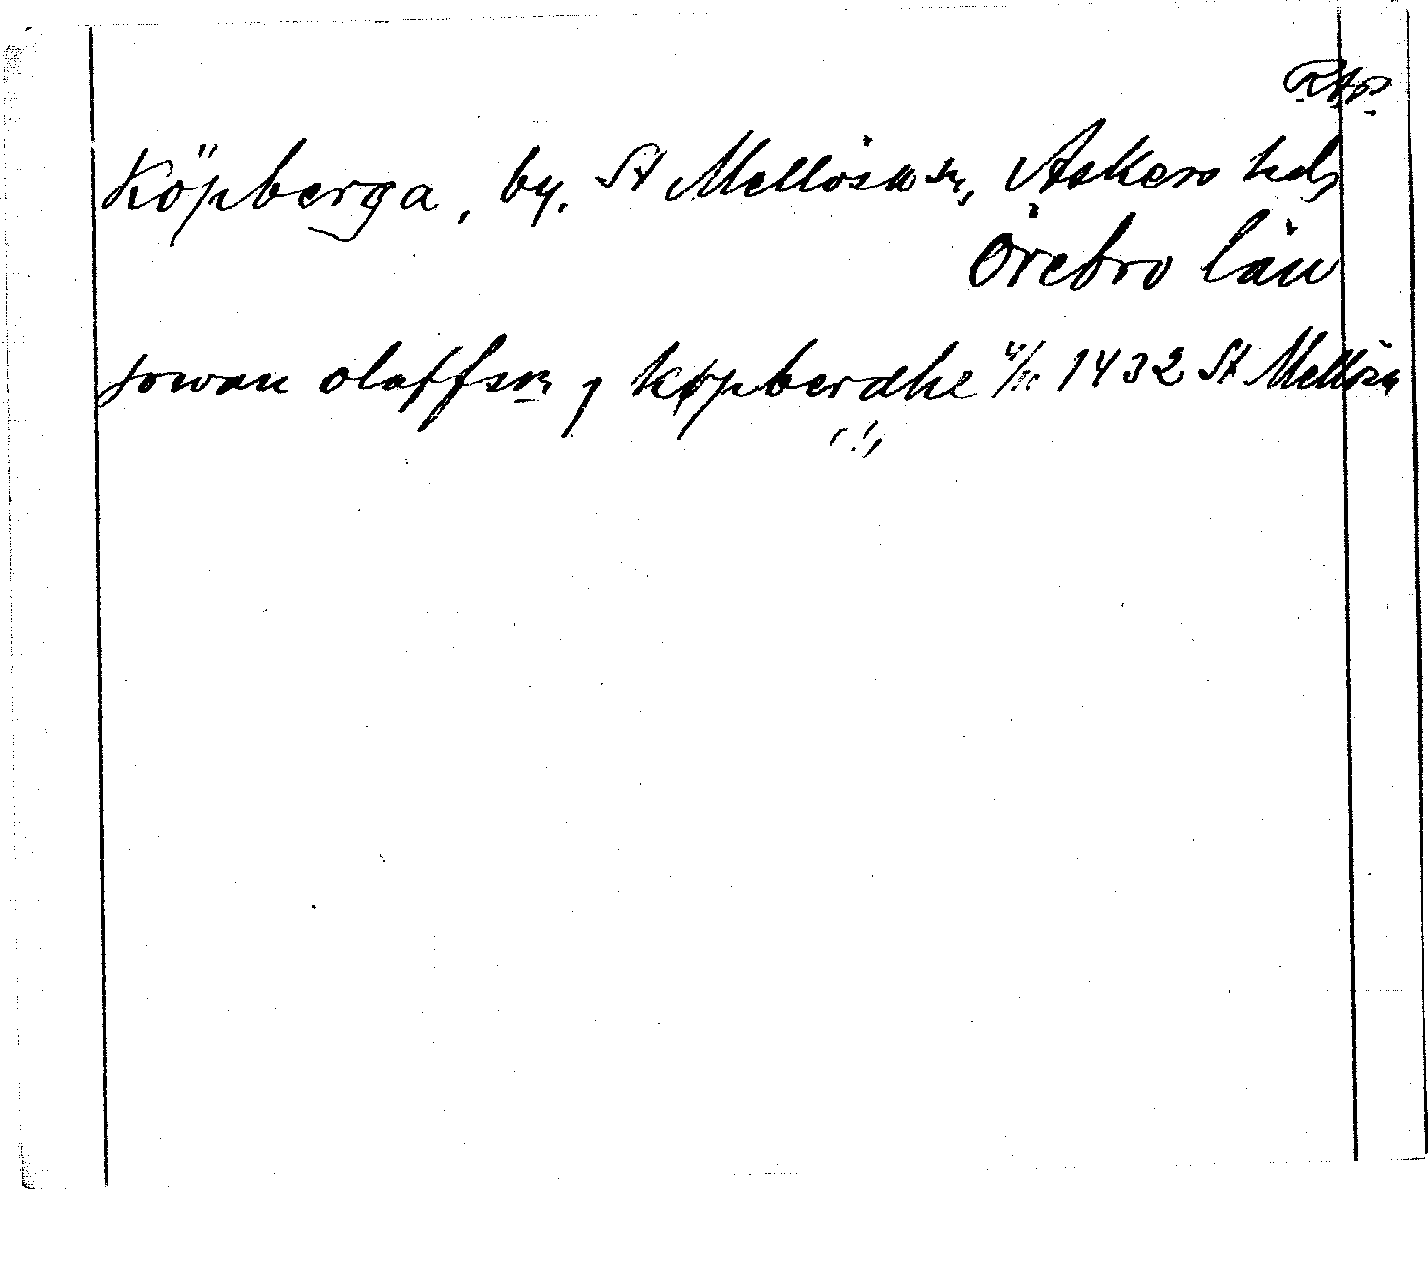 RAP
Köpberga, by, St Mellösa sn, Askers hd,
Örebro län
jowan olaffson j køpberdhe 4/11 1432 St Mellösa
(!),